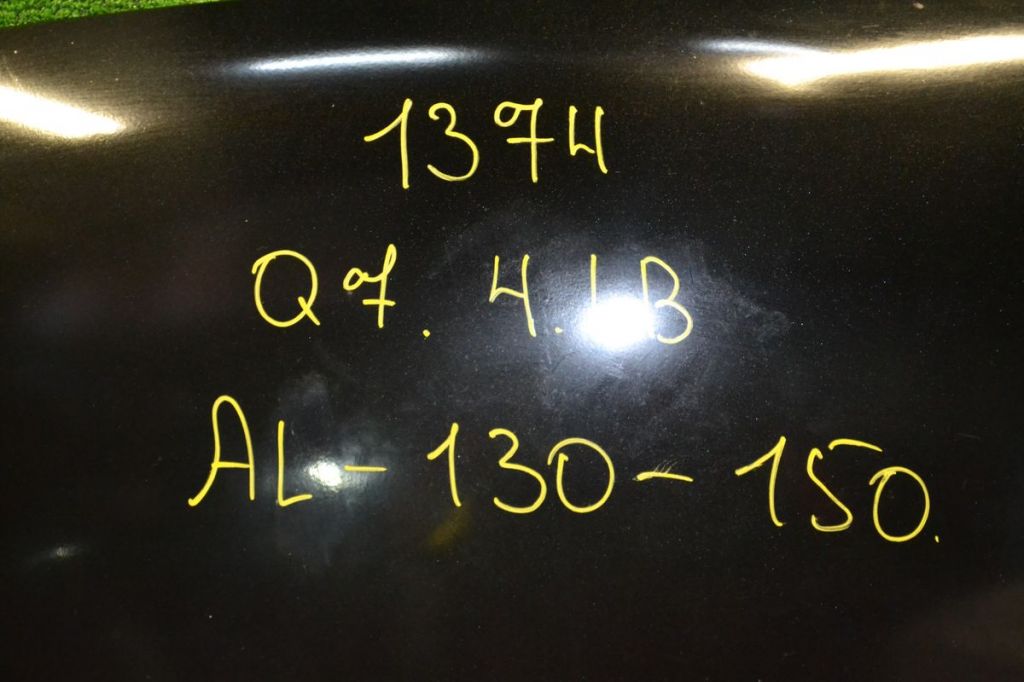 1374
Q7. 4.LB
AL-130-150.